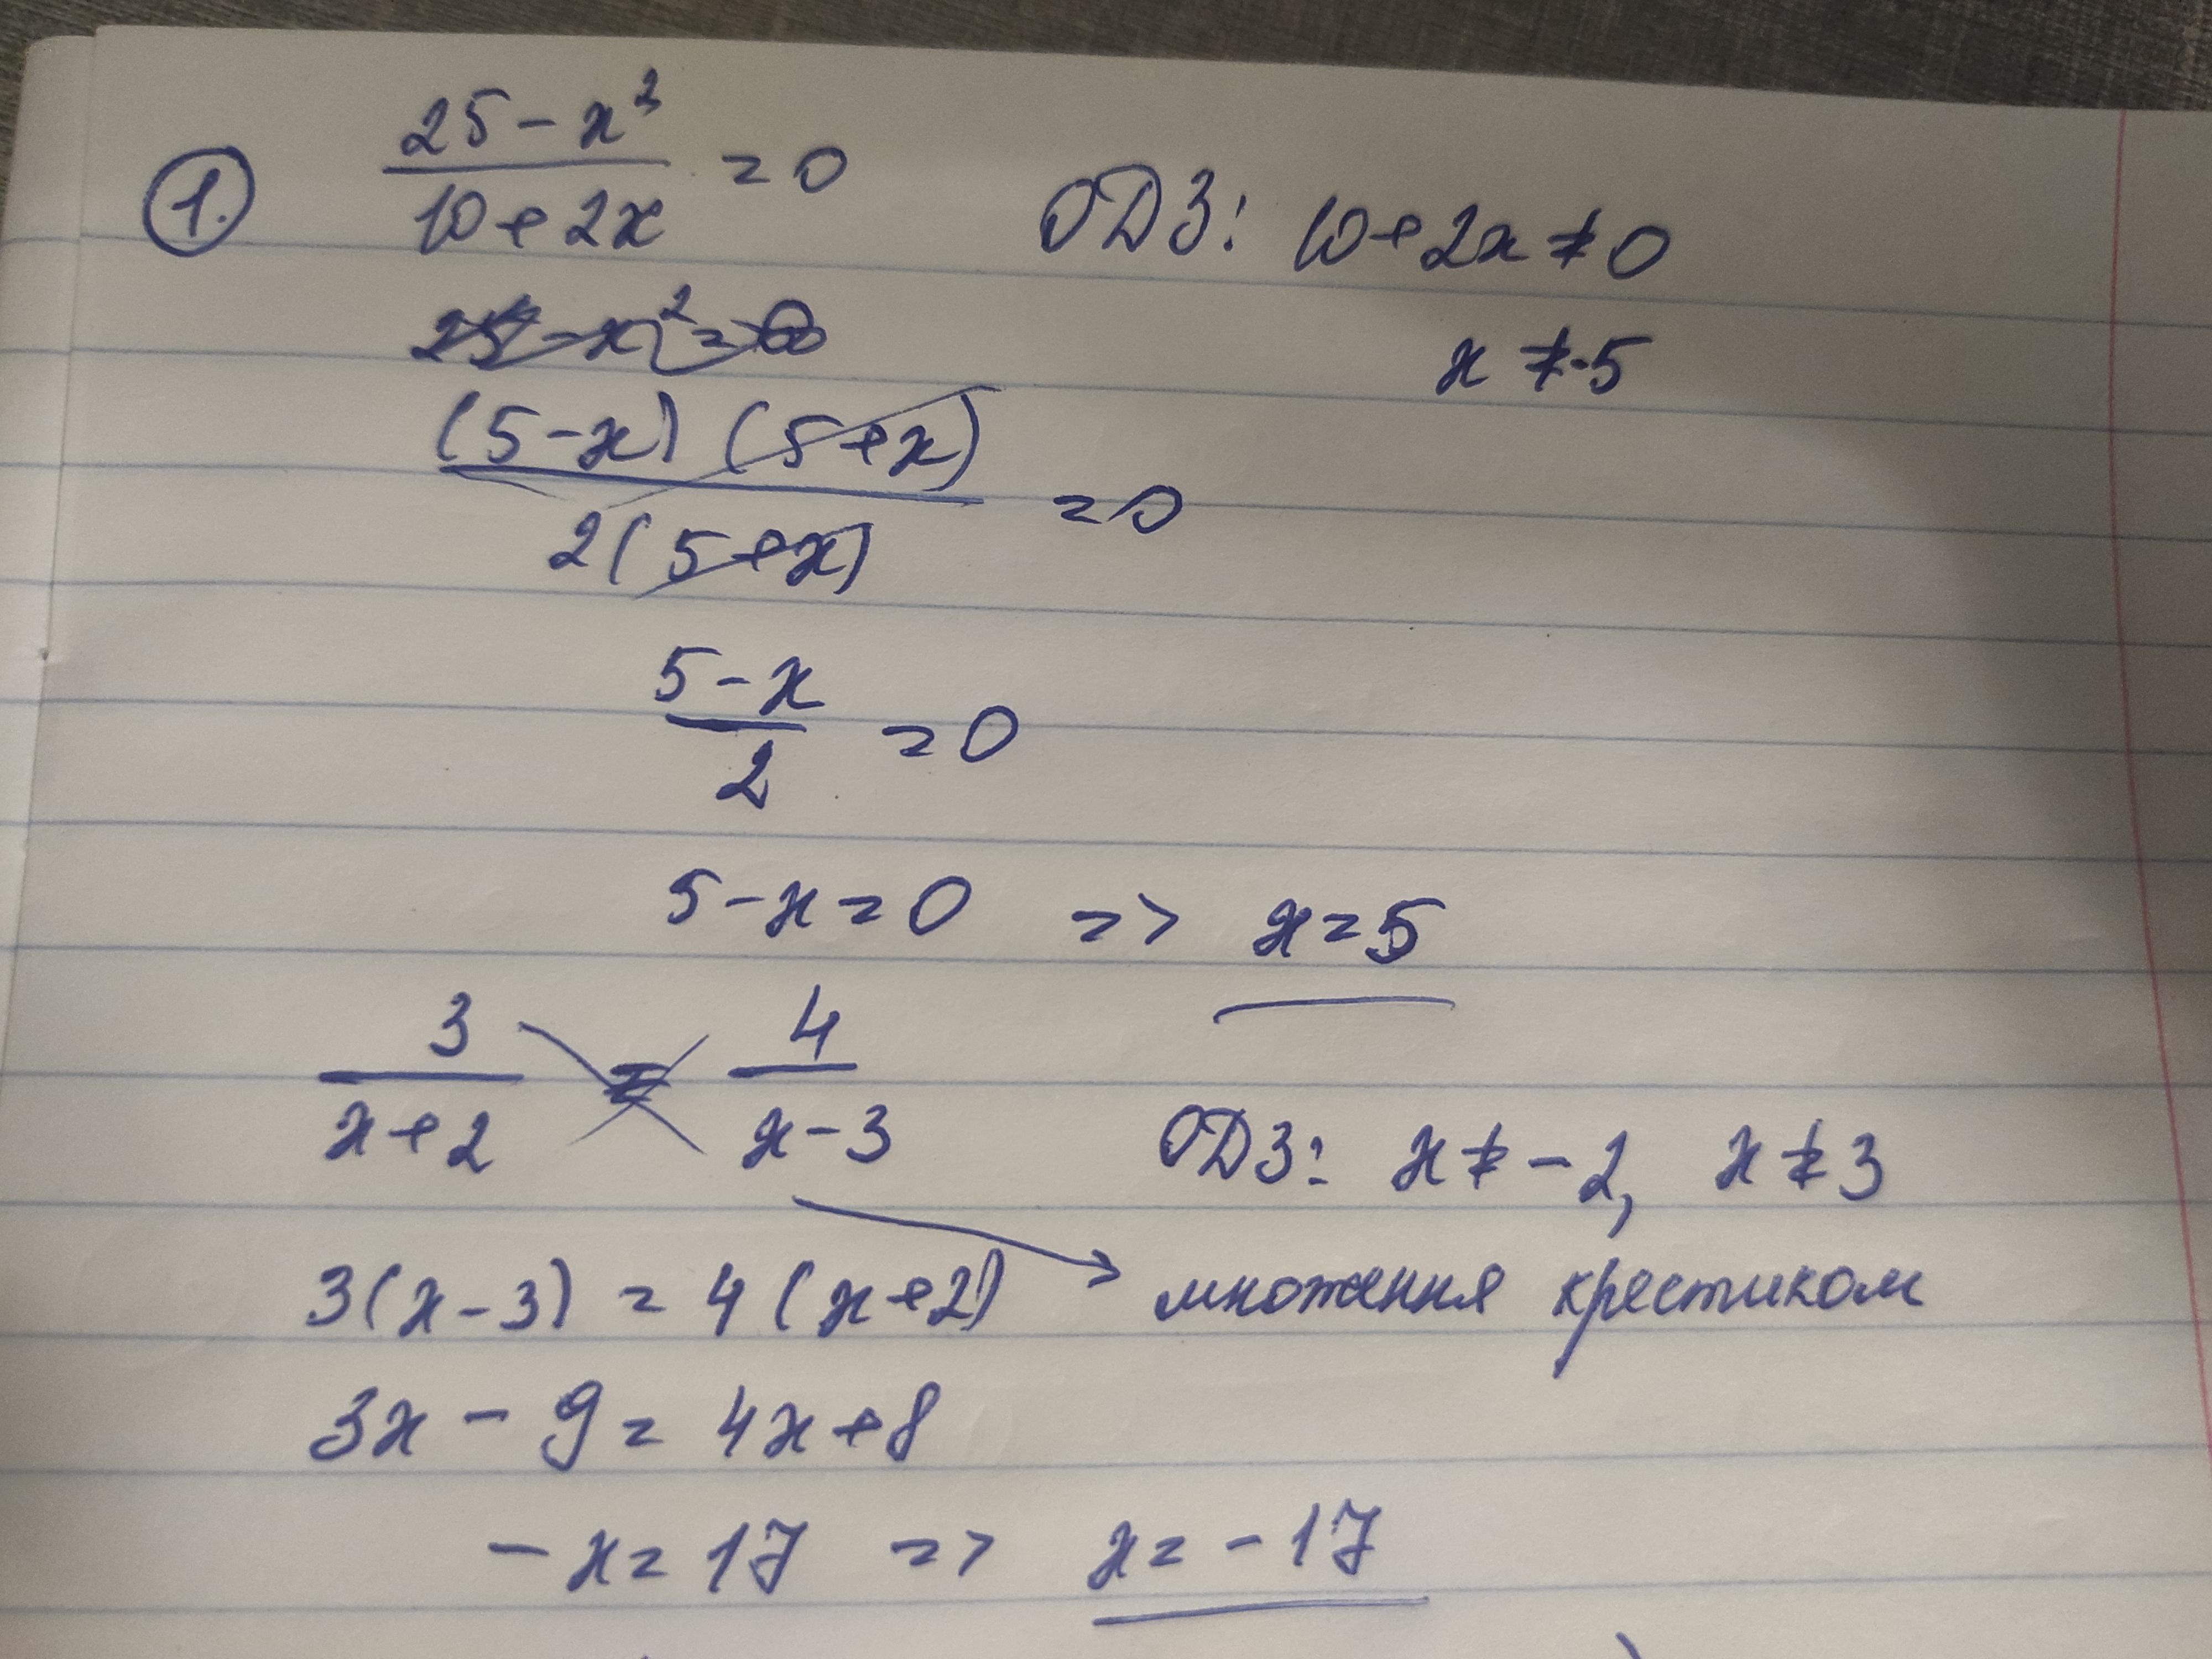 1. (25 - x²)/(10 + 2x) = 0 ОДЗ: 10 + 2x ≠ 0
25 - x² = 0 x ≠ -5
((5 - x)(5 + x))/(2(5 + x)) = 0
(5 - x)/2 = 0
5 - x = 0 => x = 5
3/(x + 2) = 4/(x - 3) ОДЗ: x ≠ -2, x ≠ 3
3(x - 3) = 4(x + 2) → множення крестиком
3x - 9 = 4x + 8
-x = 17 => x = -17